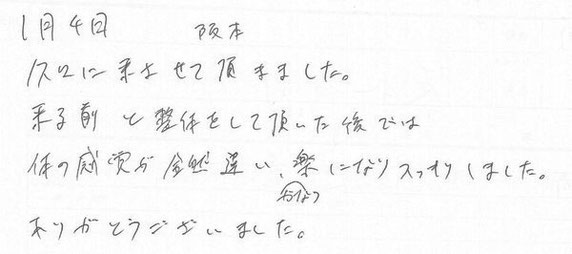 1月4日 阪本
久々に来させて頂きました。
来る前と整体をして頂いた後では
体の感覚が全然違い、楽になりスッキリしました。
ありがとうございました。